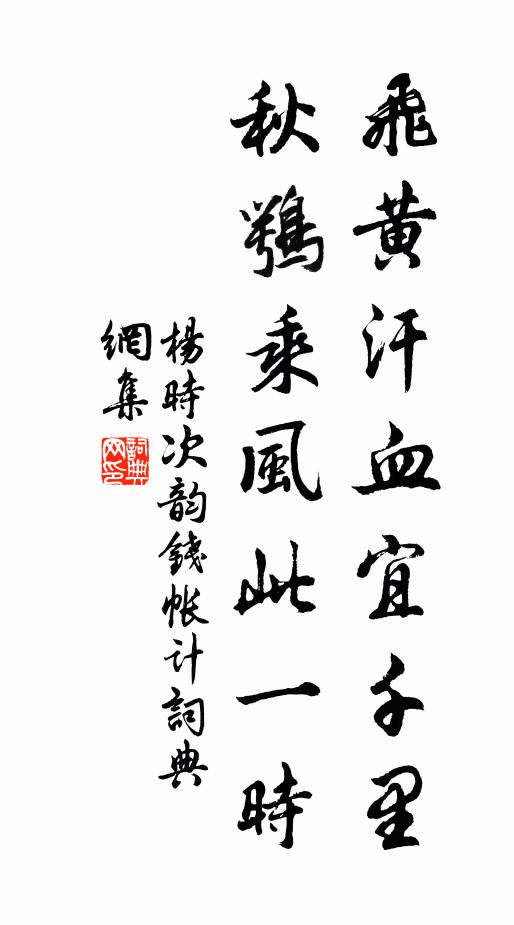 飛黃汗血宜千里
秋鶚乘風此一時
楊時次韵錢帐计詞典
網集
詞典網印